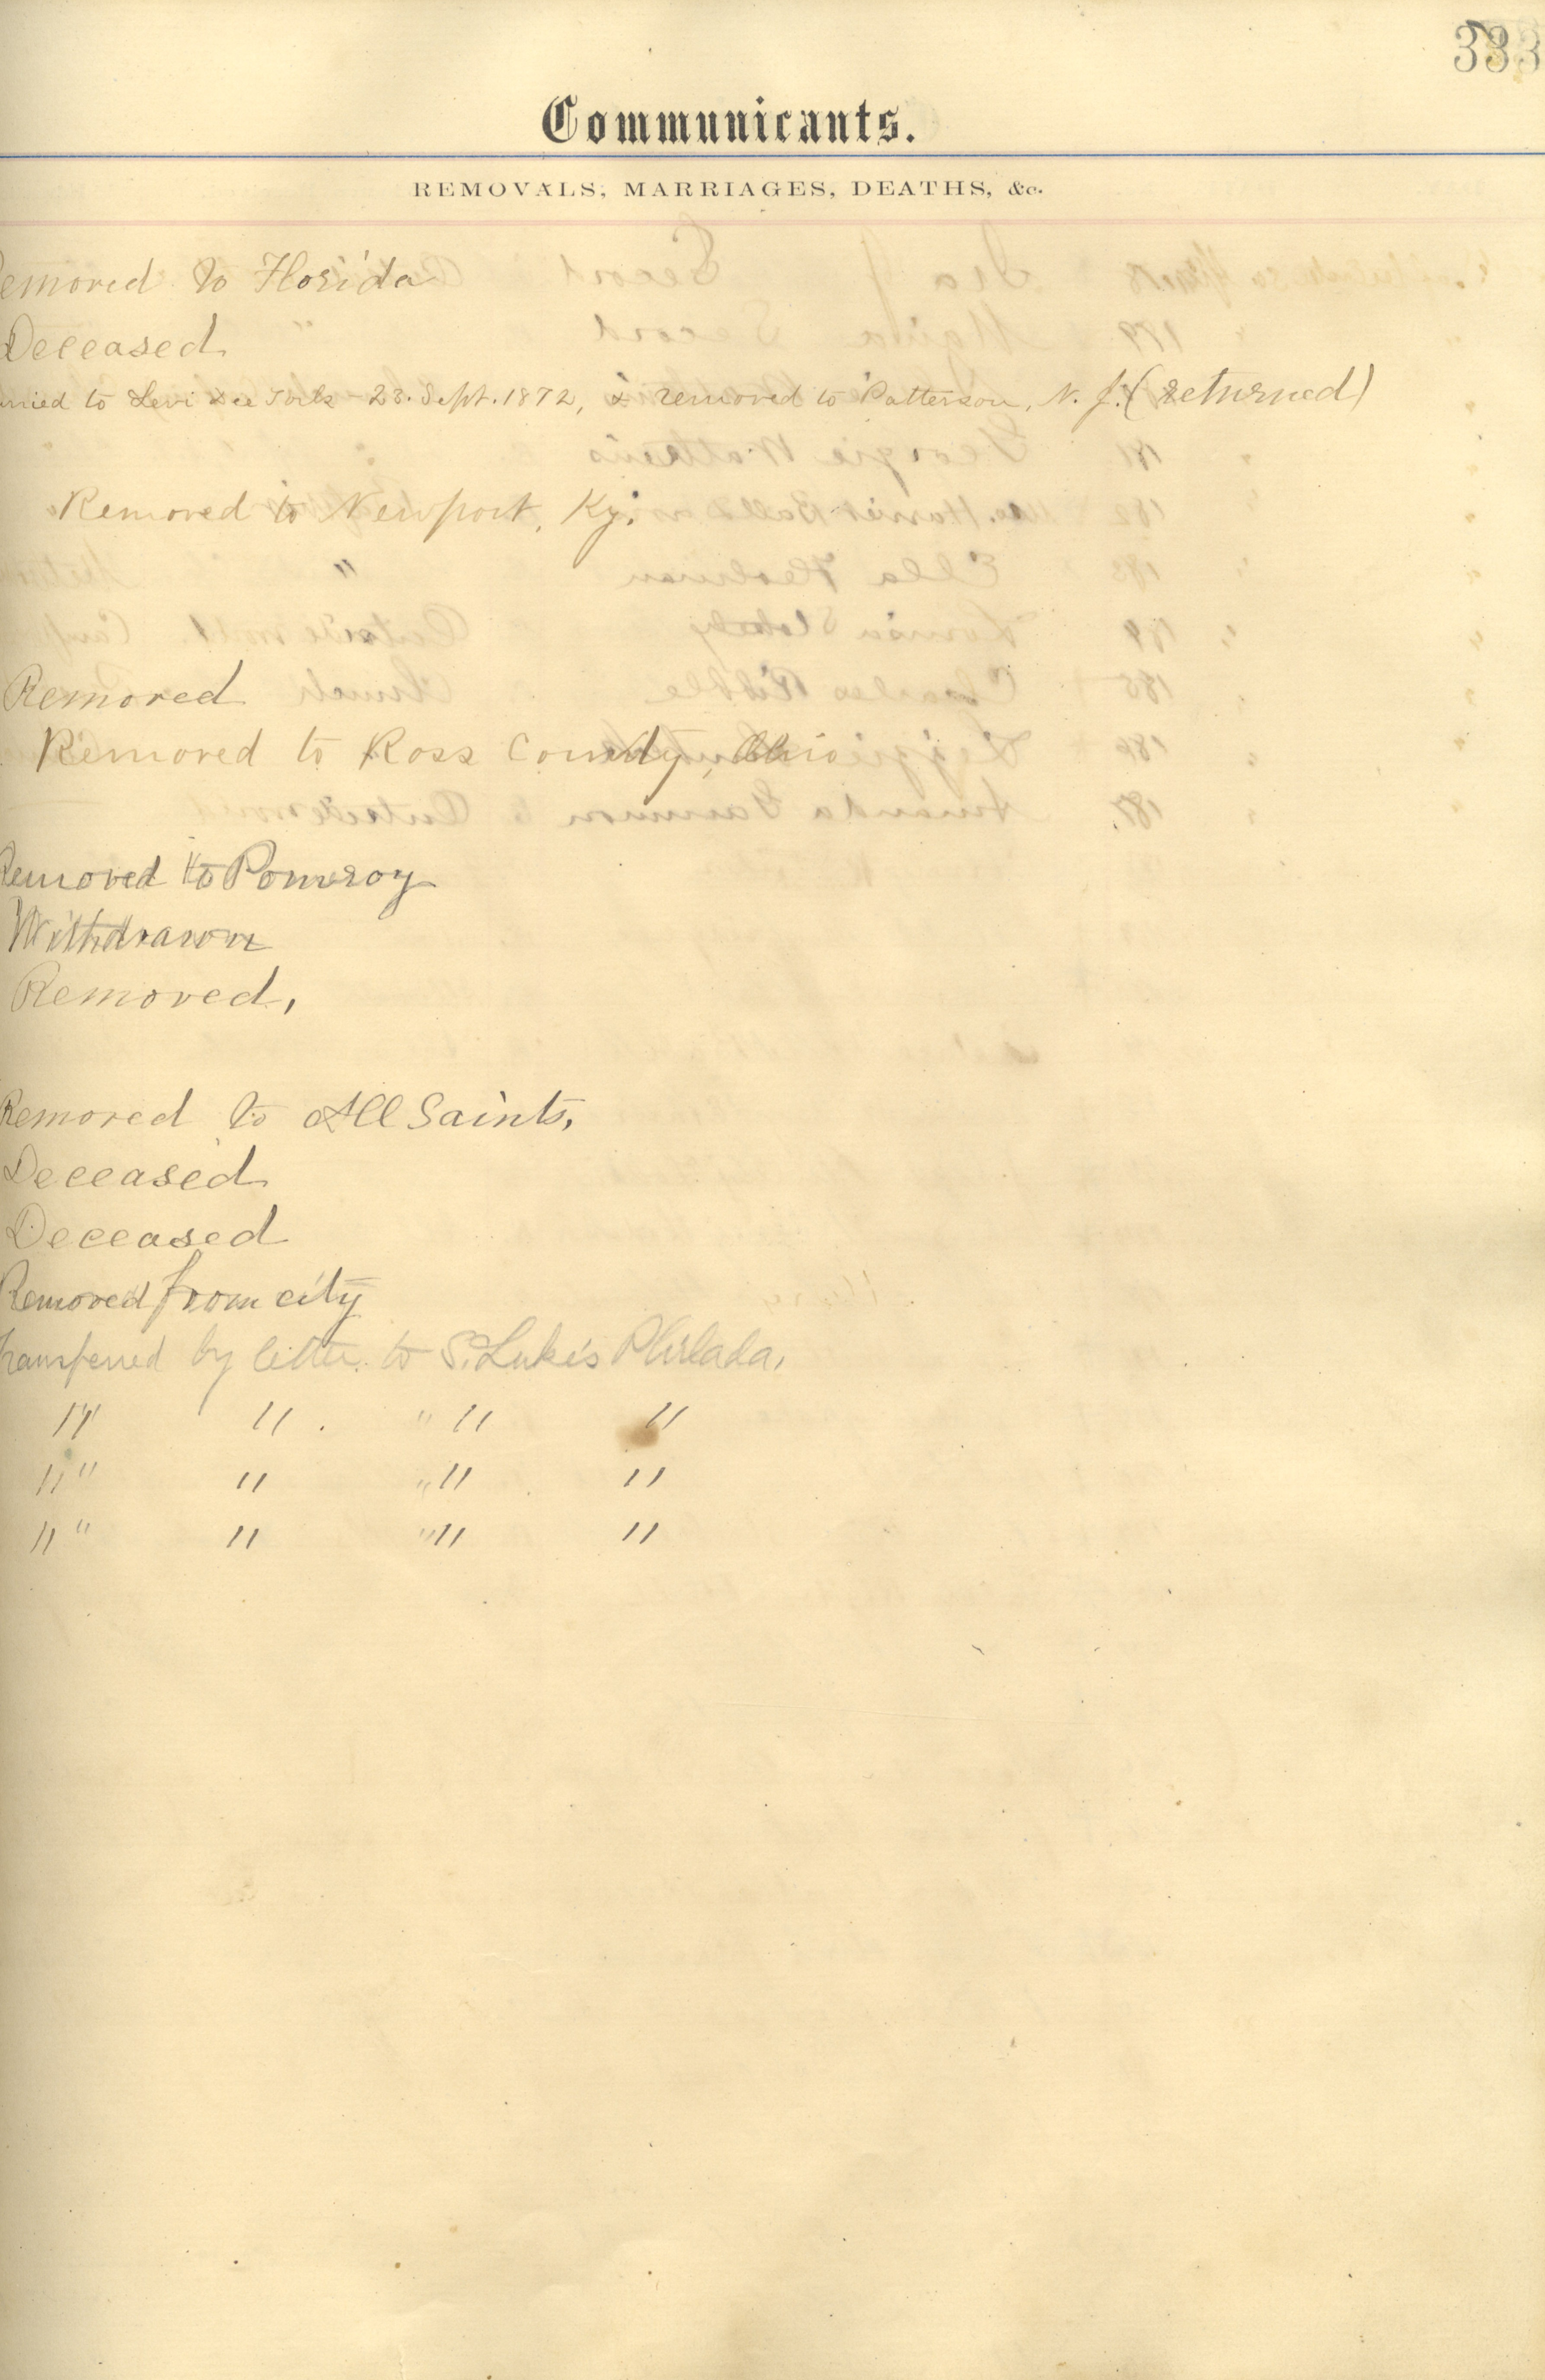 333
Communicants.
REMOVALS, MARRIAGES, DEATHS, &c.
emoved to Florida
Deceased
rried to Levi 23. Sept. 1872, & removed to Patterson, N. J. (returned)
Removed to Newport, Ky.
Removed
Removed to Ross County, Ohio
Removed to Pomeroy
Withdrawn
Removed,
Removed to All Saints,
Deceased
Deceased
Removed from city
Transferred by letter to S. Luke's Philada,
" " " " "
" " " " " "
" " " " " "